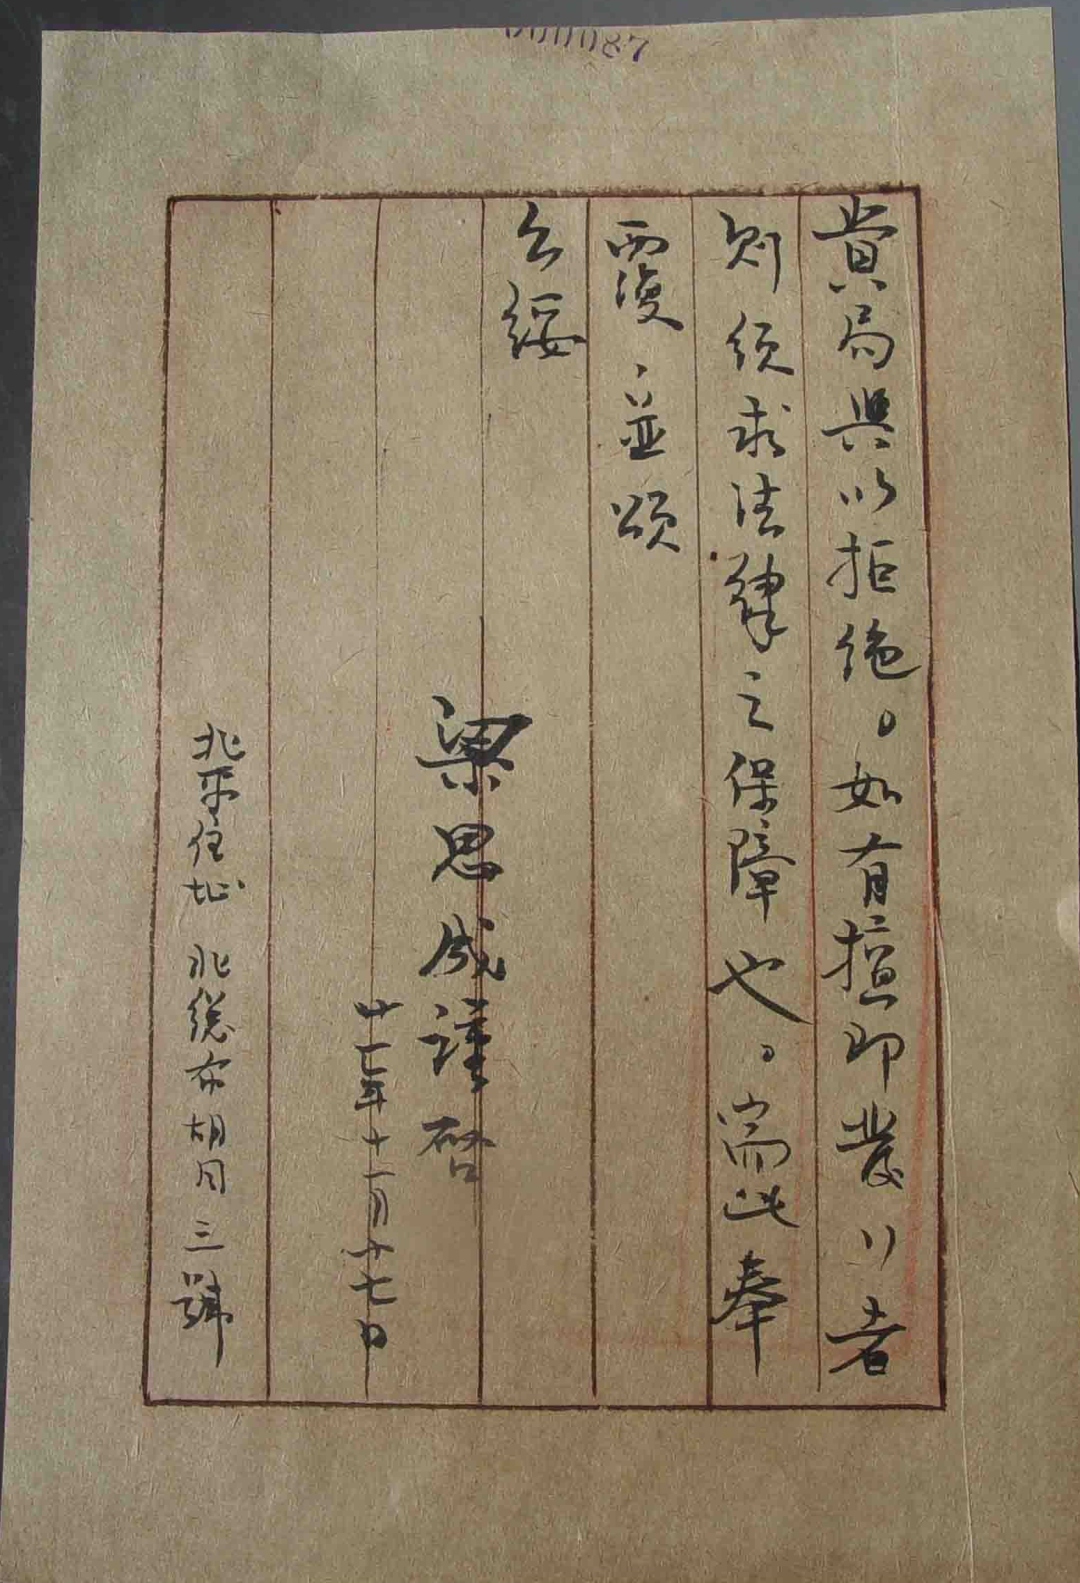 000087
貴局與以拒絕。如有擅印發行者
則須求法律之保障也。耑此奉
覆、並頌
公綏
梁思成謹啓
廿一年十一月十七日
北平住址 北總布胡同三號